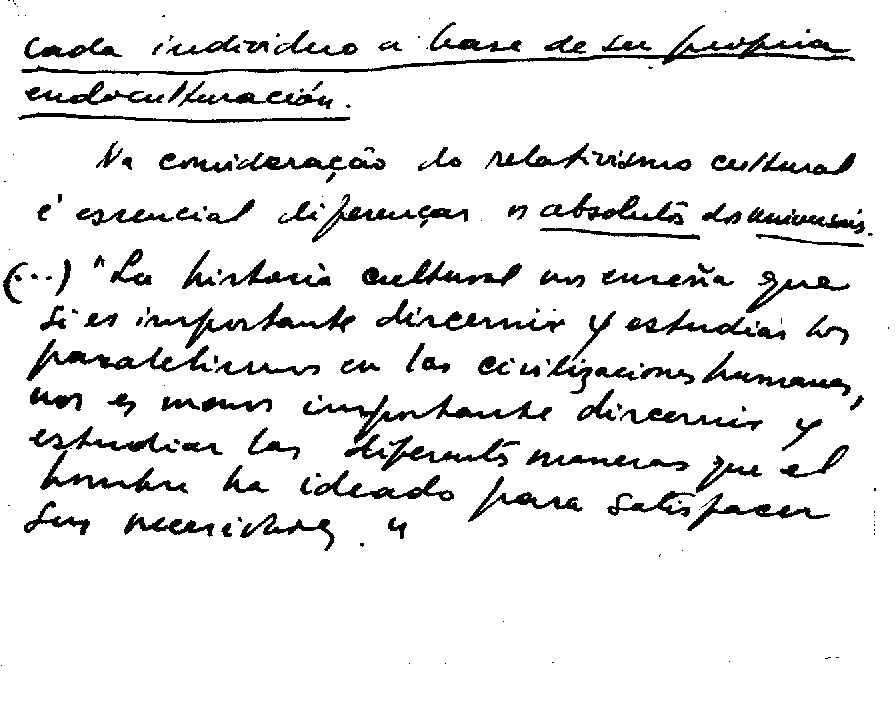 cada individuo a base de su propia
endoculturación.
Na consideração do relativismo cultural
é essencial diferençar os absolutos dos universais.
(...) "La historia cultural nos enseña que
si es importante discernir y estudiar los
paralelismos en las civilizaciones humanas,
nos es menos importante discernir y
estudiar las diferentes maneras que el
hombre ha ideado para satisfacer
sus necesidades."